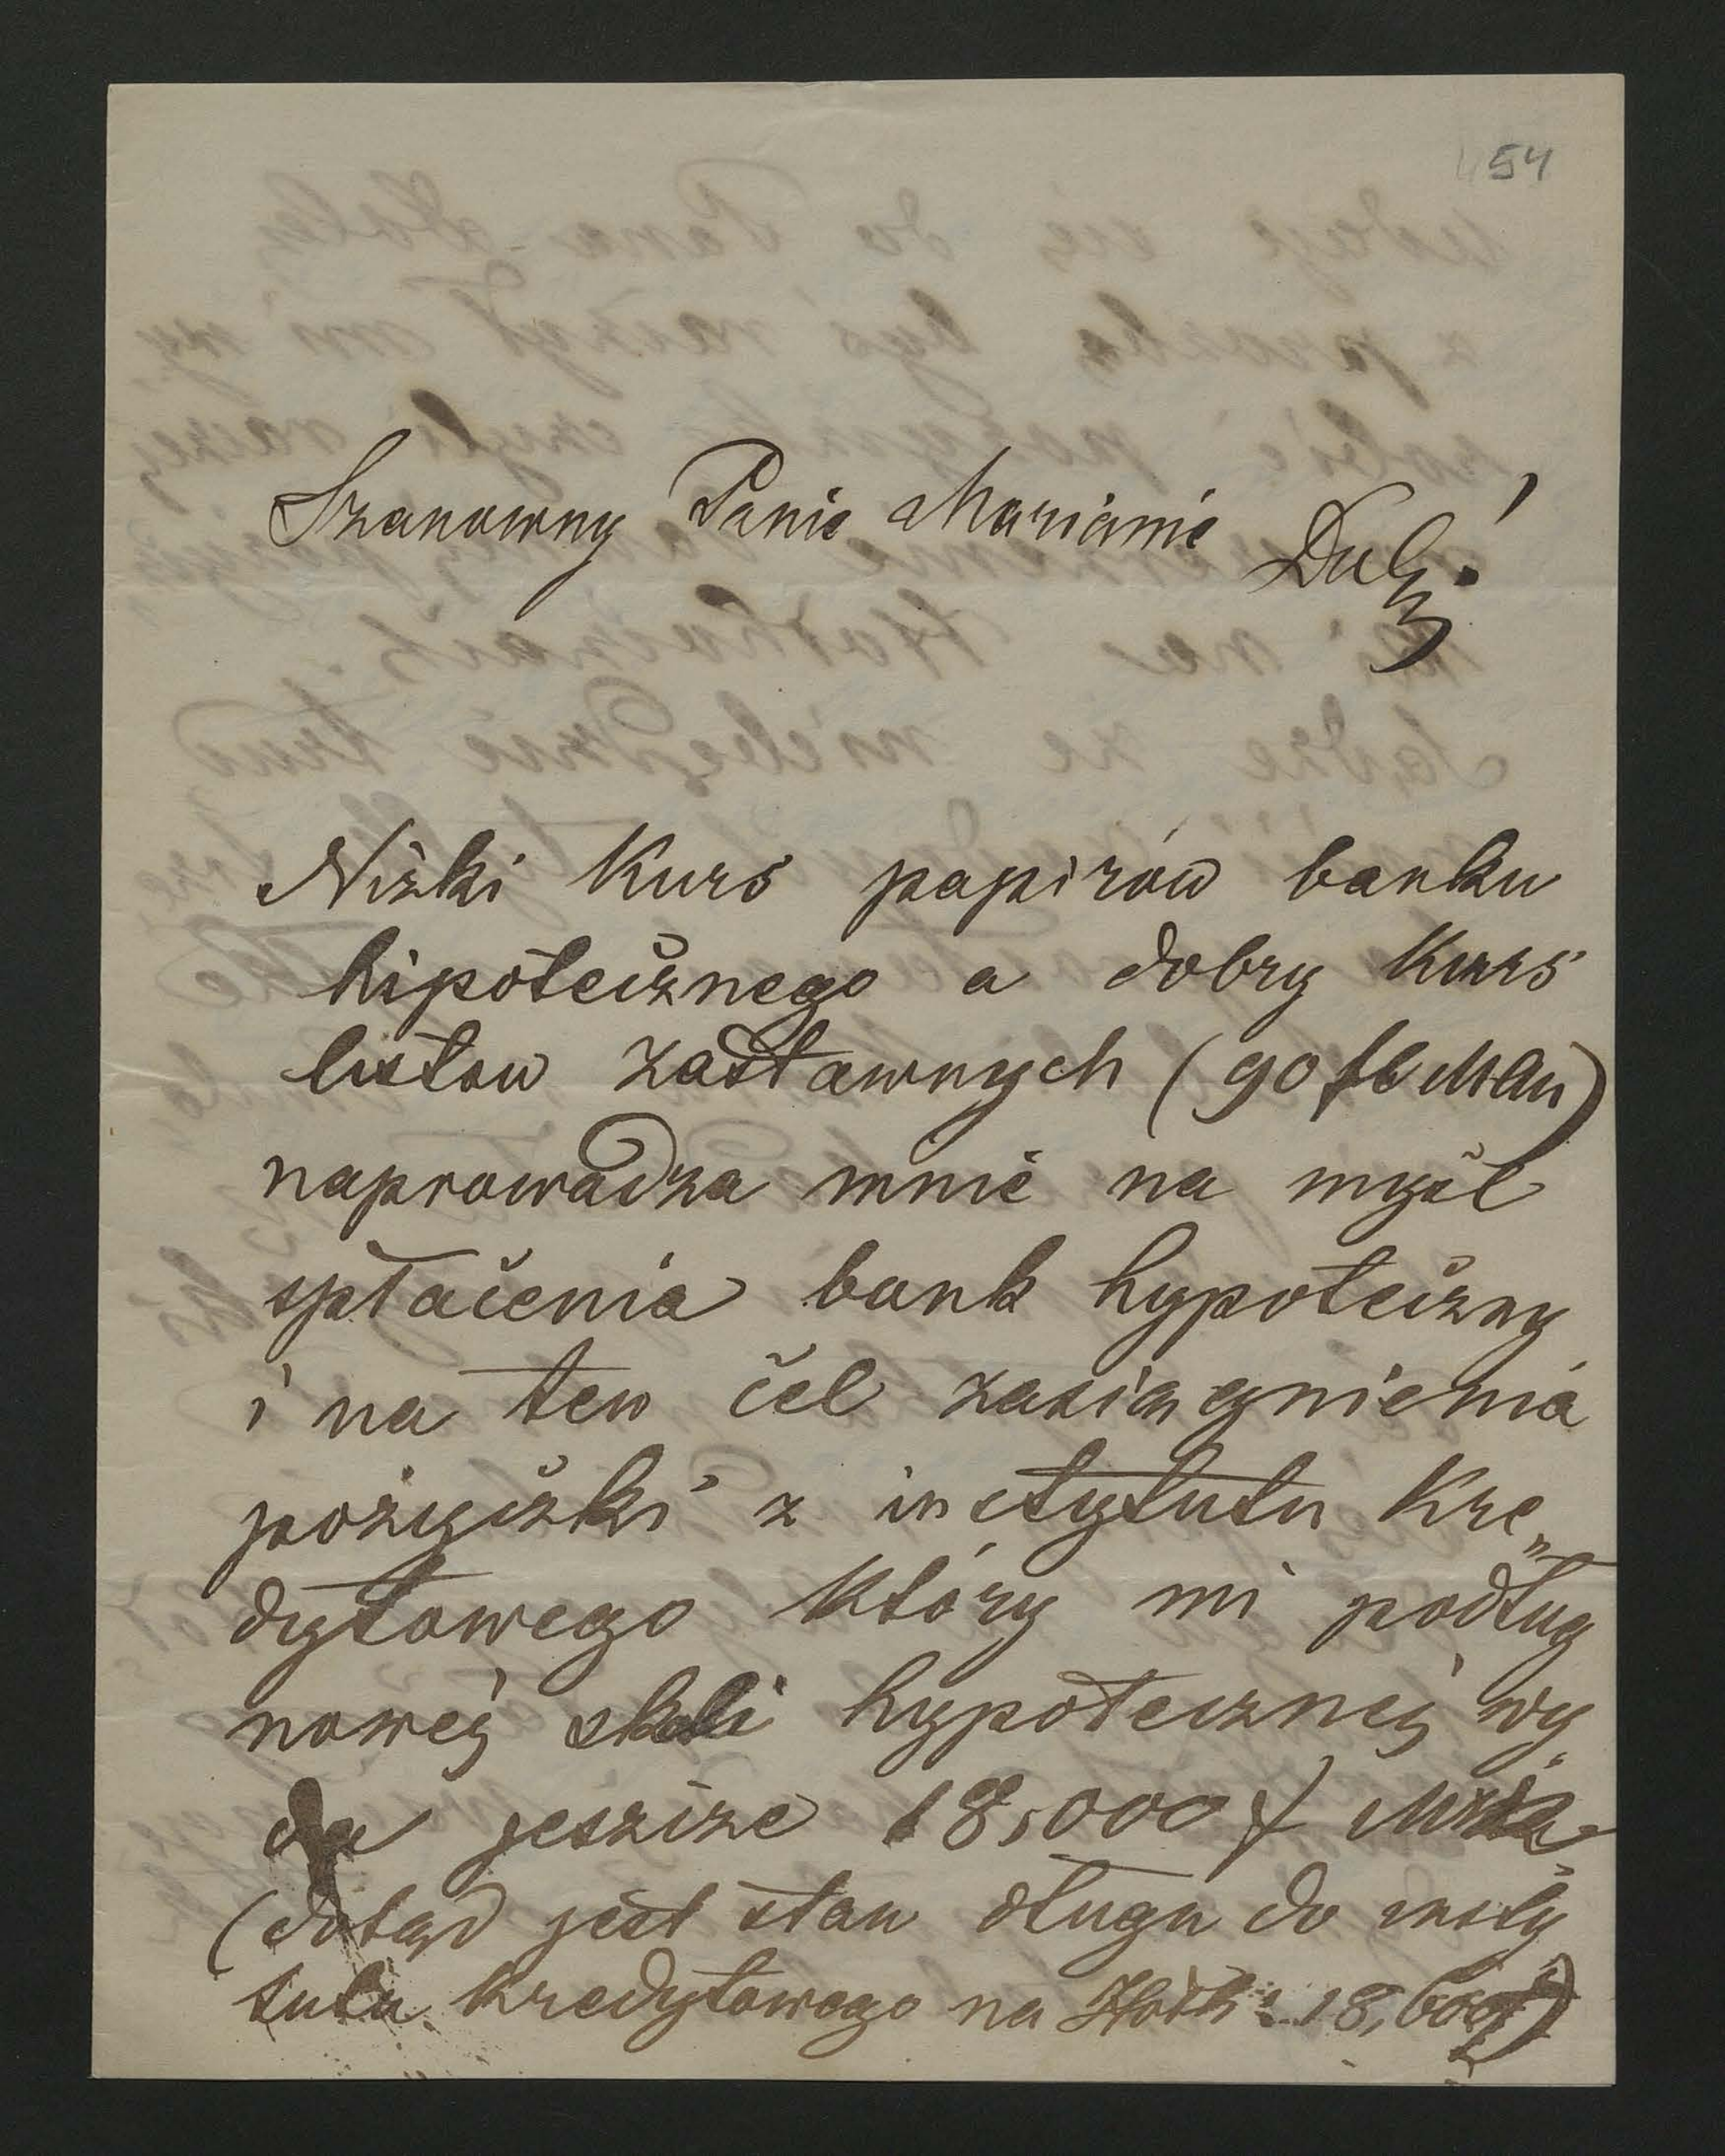 54
Szanowny Panie Marianie Dob!
Nizki Kurs papirów banku
hipotecznego a dobry Kurs
listow zastawnych (90
naprowadza mnie na myśl
spłacenia bank hypoteczny
i na ten cel zasiągnienia
pożyczki z instytutu Kre„
dytowego Który mi podług
nowéj skali hypotecznéj wy
da jeszcze 18,000 f
(dotąd jest stan długu do insty
tutu Kredytowego na 18,600f)